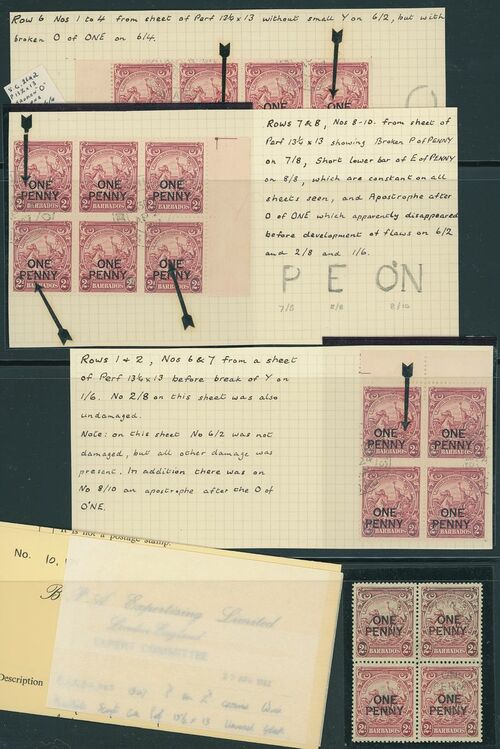 Row 6 Nos 1 to 4 from sheet of Perf 13½ x 13 without small Y on 6/2, but with
broken O of ONE on 6/4.
ONE
ONE
Rows 7 & 8, Nos 8-10. from sheet of
Perf 13½ x 13 showing Broken P of PENNY
on 7/8, Short lower bar of E of PENNY
on 8/8, which are constant on all
sheets seen, and Apostrophe after
O of ONE which apparently disappeared
before development of flaws on 6/2
and 2/8 and 1/6.
P E O'N
7/8 8/8 8/10
ONE ONE ONE
PENNY PENNY PENNY
2d BARBADOS 2d 2d BARBADOS 2d 2d BARBADOS 2d
ONE ONE ONE
PENNY PENNY PENNY
2d BARBADOS 2d 2d BARBADOS 2d 2d BARBADOS 2d
Rows 1 & 2, Nos 6 & 7 from a sheet
of Perf 13½ x 13 before break of Y on
1/6. No 2/8 on this sheet was also
undamaged.
Note: on this sheet No 6/2 was not
damaged, but all other damage was
present. In addition there was on
No 8/10 an apostrophe after the O of
O'NE.
ONE ONE
PENNY PENNY
2d BARBADOS 2d 2d BARBADOS 2d
ONE ONE
PENNY PENNY
2d BARBADOS 2d 2d BARBADOS 2d
it is not a postage stamp.
No. 10,
B
Description
P. A. Expertising Limited
London England
EXPERT COMMITTEE
ONE ONE
PENNY PENNY
2d BARBADOS 2d 2d BARBADOS 2d
ONE ONE
PENNY PENNY
2d BARBADOS 2d 2d BARBADOS 2d